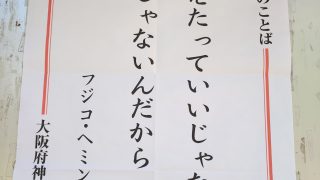 のことば
たっていいじゃな
じゃないんだから
フジコ・ヘミン
大阪府神